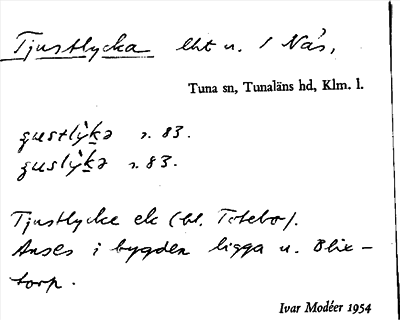 Tjustlycka lht u. / Nås,
Tuna sn, Tunaläns hd, Klm. l.
s. 83.
s. 83.
Tjustlycke ek (bl. Totebo).
Anses i bygden ligga u. Blix-
torp.
Ivar Modéer 1954